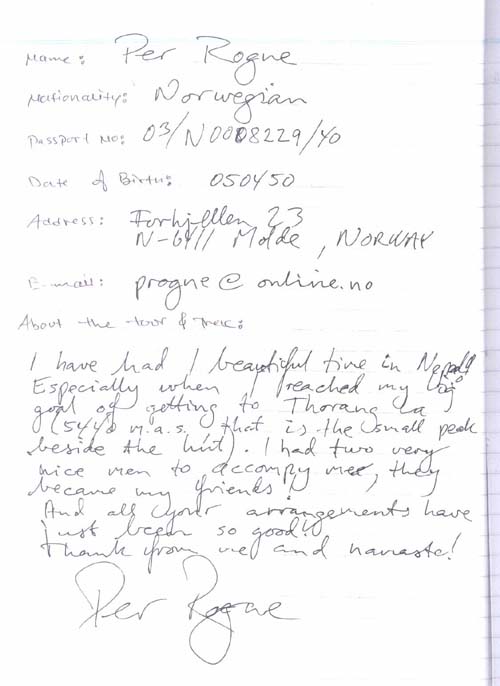 Name: Per Rogne
Nationality: Norwegian
Passport No: 03/N0008229/40
Date of Birth: 050450
Address: 23
N-6411 Molde, NORWAY
E-mail: progne@online.no
About the tour & Trek:
I have had I beautiful time in Nepal!
Especially when I reached my big
goal of getting to Thorang La
(5440 m.a.s. that is the small peak
beside the hut). I had two very
nice men to accompy me, they
became my friends!
And all your arrangements have
just been so good!
Thank from me and namaste!
Per Rogne